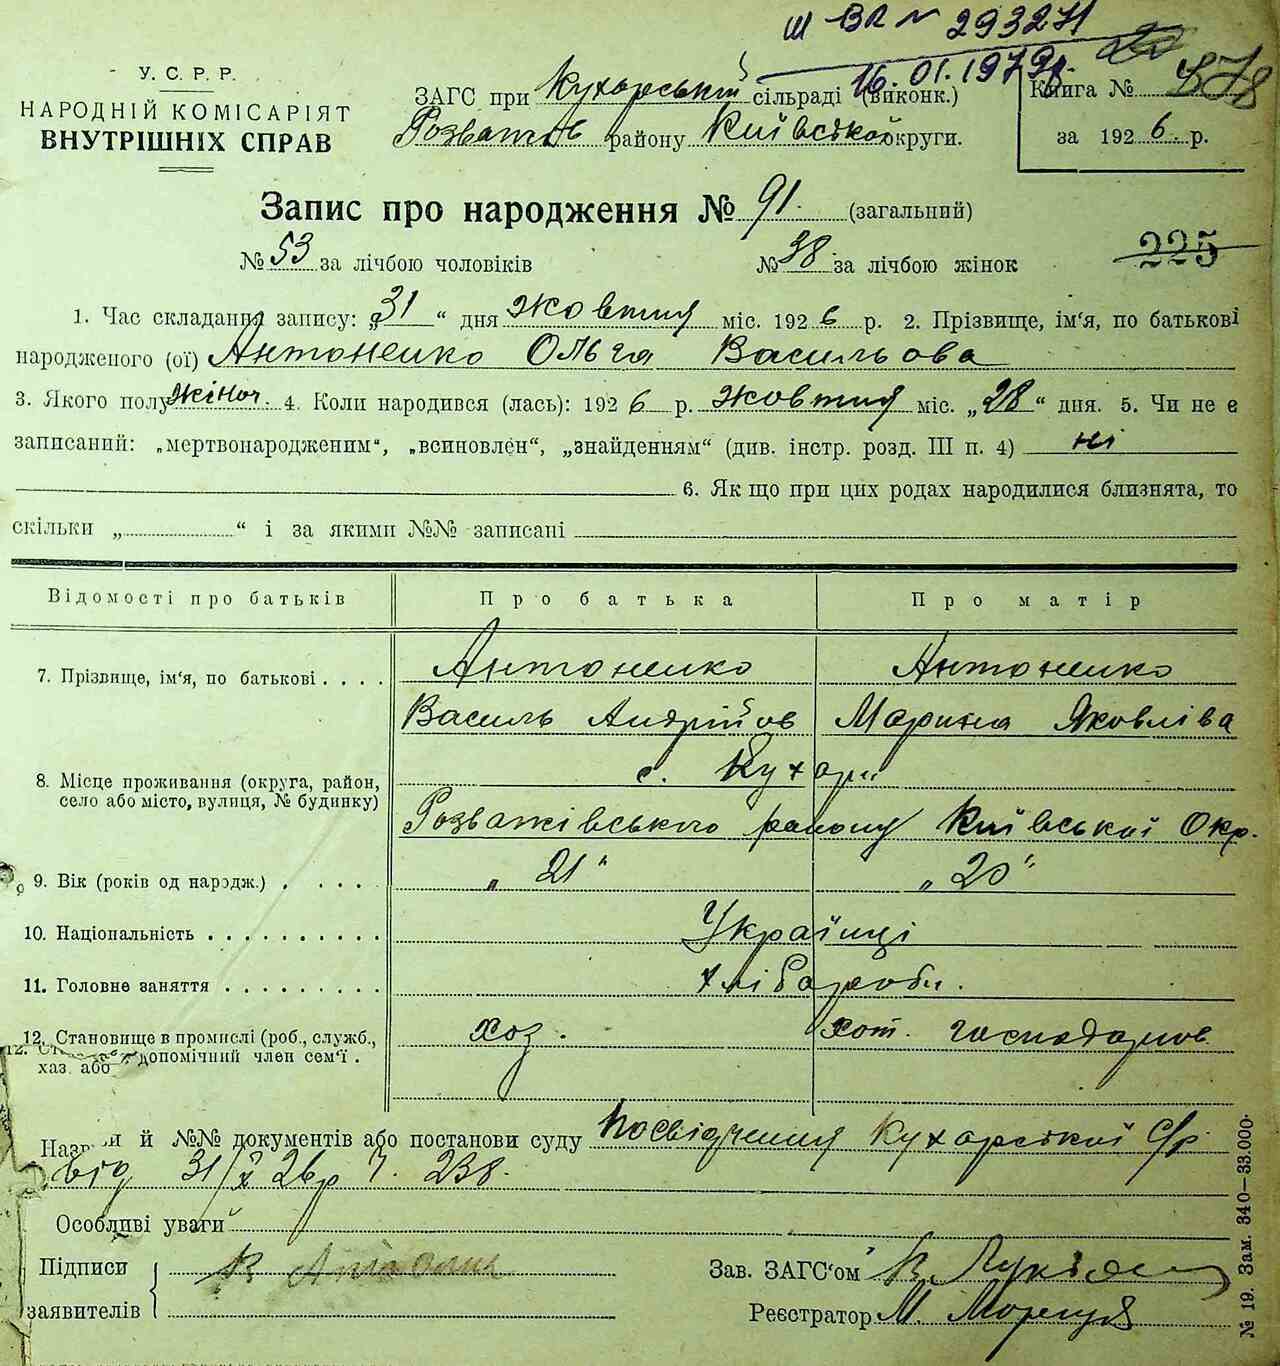 ІІІ ВА № 293271
16.01.1979р.
У. С. Р. Р.
НАРОДНІЙ КОМІСАРІЯТ
ВНУТРІШНІХ СПРАВ
ЗАГС при Кухарській сільраді (виконк.)
Розважів району Київської округи.
Книга № 878
за 1926 р.
Запис про народження № 91. (загальний)
№ 53 за лічбою чоловіків № 38 за лічбою жінок
225
1. Час складання запису: „31“ дня Жовтня міс. 1926 р. 2. Прізвище, ім'я, по батькові
народженого (ої) Антоненко Ольга Васильова
3. Якого полу жіноч. 4. Коли народився (лась): 1926 р. Жовтня міс. „28“ дня. 5. Чи не є
записаний: „мертвонародженим“, „всиновлен“, „знайденням“ (див. інстр. розд. III п. 4) ні
6. Як що при цих родах народилися близнята, то
скільки „ “ і за якими №№ записані
Відомості про батьків Про батька Про матір
7. Прізвище, ім'я, по батькові . . . . Антоненко Антоненко
Василь Андрійов Марина Яковліва
8. Місце проживання (округа, район, село або місто, вулиця, № будинку) с. Кухарі
Розважівського району Київської Окр.
9. Вік (років од народж.) . . . . „21“ „20“
10. Національність . . . . . . . . . . Українці
11. Головне заняття . . . . . . . . . Хлібороби.
12. Становище в промислі (роб., служб., хоз. хат. господарюв.
хаз. або допомічний член сем'ї .
й №№ документів або постанови суду Посвідчення Кухарської С/р
від 31/X 26р Ч. 238.
Особливі уваги
Підписи
заявителів
В
Зав. ЗАГС'ом
Реєстратор М.
№ 19. Зам. 340—33.000.